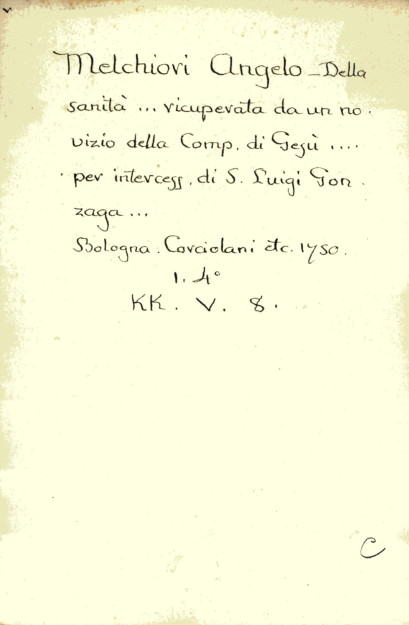 Melchiori Angelo – Della
sanità ... ricuperata da un no.
vizio della Comp. di Gesù ....
per intercess. di S. Luigi Gon.
zaga ...
Bologna. Corciolani etc. 1750.
1. 4°
KK. V. 8.
C